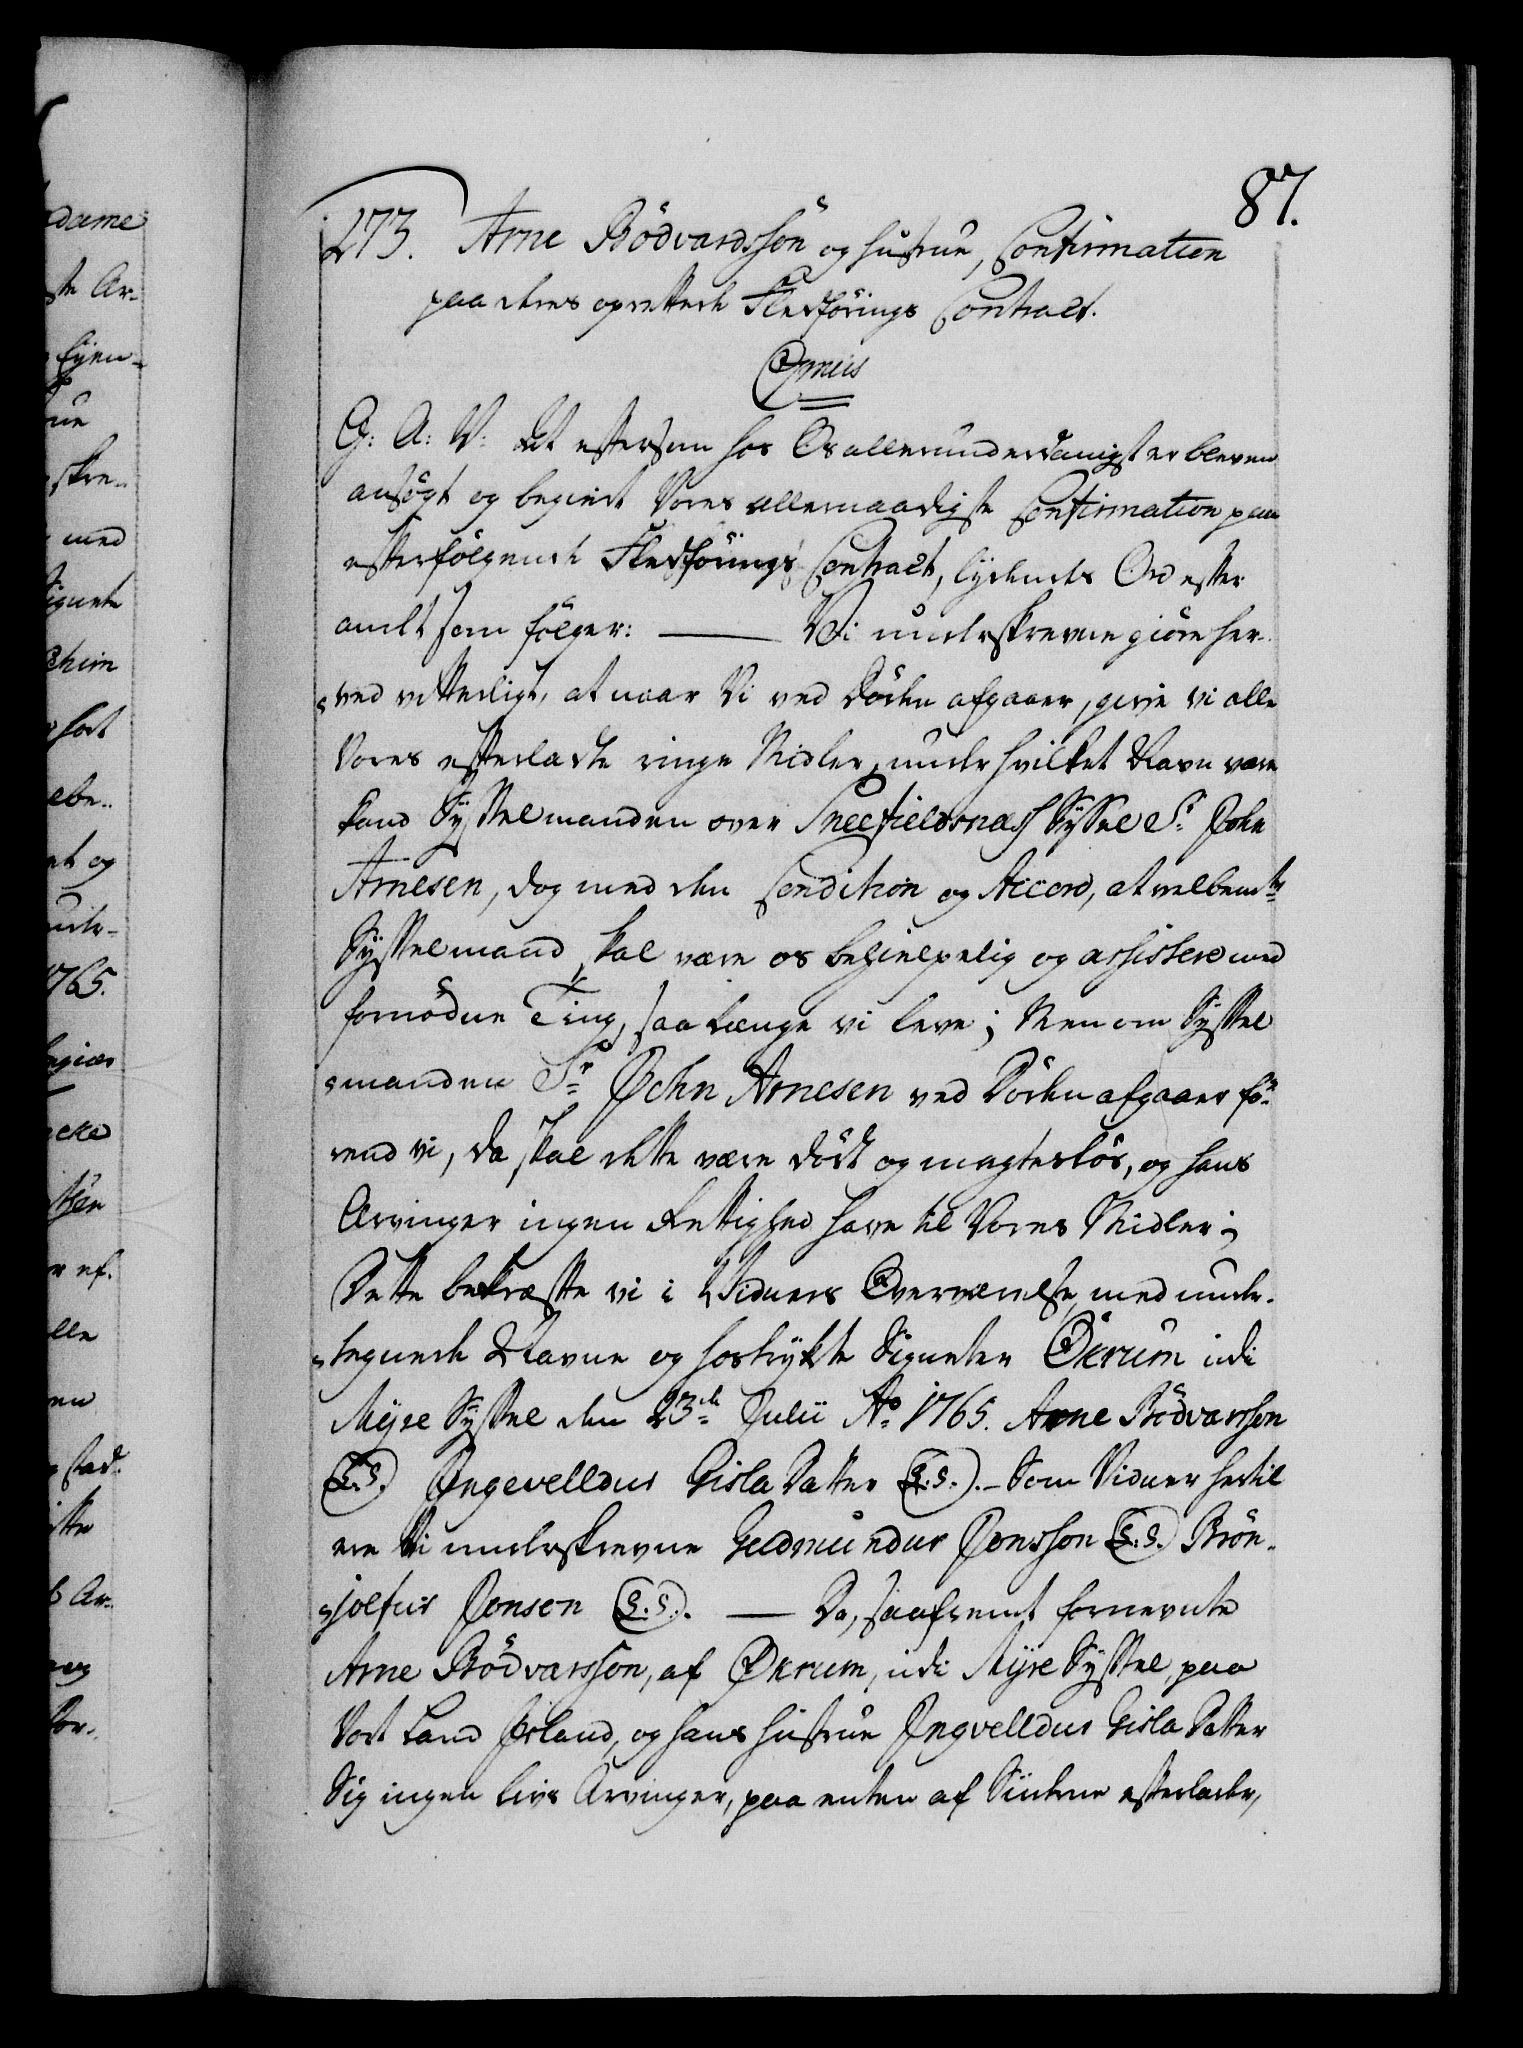 87.
273. Arne Bödvardssön og Hustrue, Confirmation
paa deres oprettede Fledførings Contract.
Omnis
G: A: V: at eftersom hos Os allerunderdanigst er bleven
ansøgt og begiert Vores allernaadigste Confirmation paa
efterfølgende Fledförings Contract, lydende Ord efter
andet som følger: — Vi underskrevne giøre her-
ved vitterligt, at naar Vi ved Döden afgaaer, give vi alle
Vores efterladte ringe Midler, under hvilket Navn være
kand Sysselmanden over Sneefieldsnæss Syssel Sr. John
Arnesen, dog med den Condition og Accord, at velbemte
Sysselmand skal være os behielpelig og assistere med
fornödne Ting, saa længe vi leve; Men om Syssel
manden Sr. John Arnesen ved Döden afgaaer fö-
rend vi, da skal dette være dödt og magteslös, og hans
Arvinger ingen Rettighed have til Vores Midler;
Dette bekræfte vi i Vidners Overværelse, med under-
tegnede Navne og hostrykte Signeter Økrum udi
Myre Syssel den 23de Julii Ao 1765. Arne Bödvarsson
(L.S.) Ingevelldur Gisla Datter (L.S.). – Som Vidner hertil
ere Vi underskrevne Gudmundur Jonsson (L.S.) Brön-
jolfur Jonsen (L.S.). — Da, saafremt fornevnte
Arne Bödvarsson, af Økrum, udi Myre Syssel paa
Vort Land Jsland, og hans Hustrue Ingvelldur Gisla Datter
Sig ingen Livs Arvinger, paa enten af Siderne efterlader,